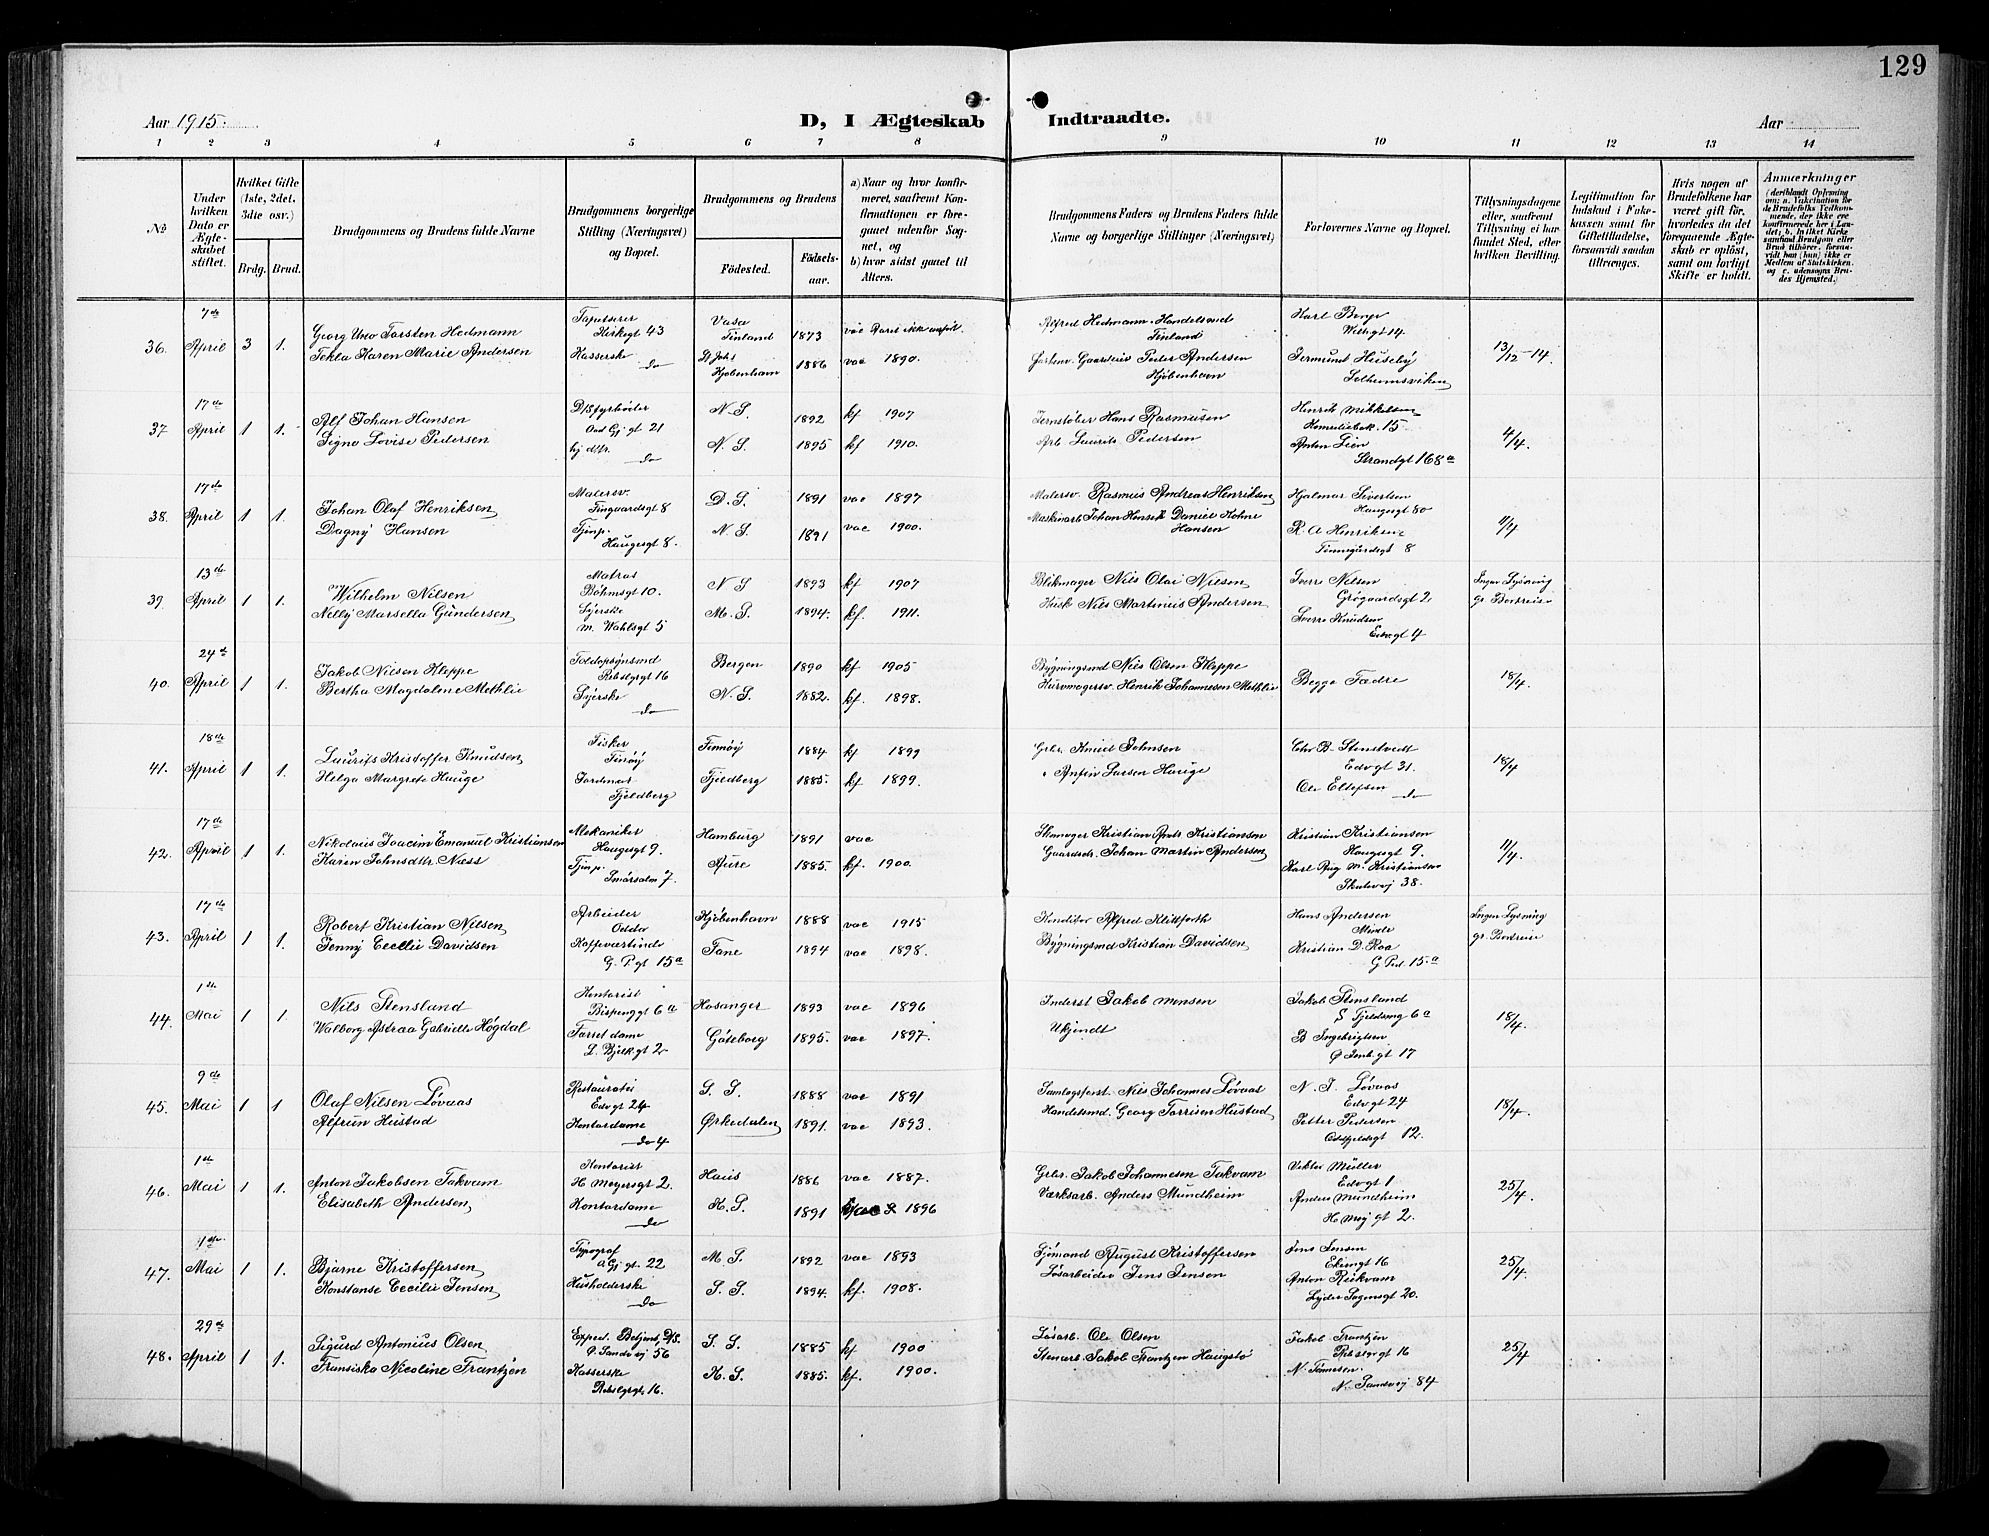 129
Aar 1915.
D, I Ægteskab Indtraadte.
Aar
1 2 3 4 5 6 7 8 9 10 11 12 13 14
No
Under hvilken Dato er Ægteskabet stiftet.
Hvilket Gifte (1ste, 2det, 3dte osv.)
Brdg. Brud.
Brudgommens og Brudens fulde Navne
Brudgommens borgerlige Stilling (Næringsvei) og Bopæl.
Brudgommens og Brudens
Födested.
Födselsaar.
a) Naar og hvor konfirmeret, saafremt Konfirmationen er foregaaet udenfor Sognet, og
b) hvor sidst gaaet til Alters.
Brudgommens Faders og Brudens Faders fulde Navne og borgerlige Stillinger (Næringsvei)
Forlovernes Navne og Bopæl.
Tillysningsdagene eller, saafremt Tillysning ei har fundet Sted, efter hvilken Bevilling.
Legitimation for Indskud i Enkekassen samt for Giftetilladelse, forsaavidt saadan tiltrænges.
Hvis nogen af Brudefolkene har været gift før, hvorledes da det foregaaende Ægteskab er oplöst, samt om lovligt Skifte er holdt.
Anmærkninger
36. 7de April 3 1.
Georg Uno Torsten Hedmann
Tekla Karen Marie Andersen
Tapetserer
Kirkegt 43
Kasserske
do
Vasa
Finland 1873
St Johs
Kjöbenhavn 1886 vac 1890.
Alfred Hedmann. Handelsmd
Finland
Peder Andersen
Kjöbenhavn
Karl Berge
Welhgt 14
Jermund Huseby
Solheimsviken
13/12-14.
37 17de April 1 1.
Alf Johan Hansen
Signe Lovise Pedersen
21
do
N. S. 1892 kf 1907
N. S. 1895 kf 1910.
Hans Rasmussen
Arb Laurits Pedersen
Henrik Mikkelsen
15
Anton Lien
Strandgt 168a
4/4.
38. 17de April 1 1.
Johan Olaf Henriksen
Dagny Hansen
Malersv.
Finnaardsgt 8
Tjenp.
Haugesgt 8.
D. S. 1891 vac 1897
N. S. 1891 vac 1900.
Malersv. Rasmus Andreas Henriksen
Maskinarb Johan Henrik Daniel Hohne
Hansen
Hjalmar Sivertsen
Haugesgt 80
R. A Henriksen
8
11/4
39. 13de April 1 1.
Wilhelm Nilsen
Nelly Marsella Gundersen
Matros
Böhmsgt 10.
Syerske
m. Wahlsgt 5
N S 1893 kf 1907
M. S. 1894. kf. 1911.
Blikmager Nils Olai Nilsen
Nils Martinius Andersen
Sverre Nilsen
Grögaardsgt 2
Sverre Knudsen
Edvgt 4
Ingen Lysning
gr. Bortreise
40. 24de April 1 1.
Jakob Nilsen Kleppe
Bertha Magdalene Methlie
Toldopsynsmd
16
Syerske
do
Bergen 1890 kf 1905
N. S. 1882. kf. 1898.
Bygningsmd Nils Olsen Kleppe
Henrik Johannesen Methlie
Begge Fædre
18/4.
41. 18de April 1 1.
Laurits Kristoffer Knudsen
Helga Margrete Hauge
Fisker
Finöy
Jordmor
Fjeldberg
Finnöy 1884 kf 1899
Fjeldberg 1885. kf 1899.
Grbr Knud Johnsen
" Anfin Larsen Hauge
Chr B. Stenstvedt
Edvgt 31.
Ole Ellefsen
do
18/4
42. 17de April 1 1.
Nikolaus Joacim Emanuel Kristiansen
Karen Johnsdtr Næss
Mekaniker
Haugesgt 9.
Tjenp.
Smörsalm 7.
Hamburg 1891 vac
Aure 1885. kf. 1900.
Skomager Kristian Kristiansen
Gaardsdr. Johan Martin Andersen
Kristian Kristiansen
Haugesgt 9.
Karl Aug M. Kristiansen
Skutevg 38.
11/4
43. 17de April 1 1.
Robert Kristian Nilsen
Jenny Cecilie Davidsen
Arbeider
Odda
Kaffevertinde
G. P. gt 15a
Kjöbenhavn 1888 vac 1915
Fane 1894 vac 1898.
Konditor Alfred Klittforth
Bygningsmd Kristian Davidsen
Hans Andersen
Minde
Kristian D. Roa
G Ped. 15.a
Ingen Lysning
gr. Bortreise
44. 1ste Mai 1 1.
Nils Stensland
Walborg Astraa Gabrielle Högdal
Kontorist
Bispenggt 6a
2
Hosanger 1893 vac 1896
Göteborg 1895. vac 1897.
Inderst Jakob Monsen
Ukjendt
Jakob Stensland
6a
B Ingebrigtsen
17
18/4.
45. 9de Mai 1 1
Olaf Nilsen Lövaas
Alfrun Hustad
Edvgt 24
Kontordame
do 4
S. S. 1888 vac 1891
Orkedalen 1891. vac 1893.
Nils Johannes Lövaas
Handelsmd. Georg Torrisen Hustad
N. J. Lövaas
Edvgt 24
Petter Pedersen
12.
18/4.
46. 1ste Mai 1 1.
Anton Jakobsen Takvam
Elisabeth Andersen
Kontorist
H Meyersgt 2.
Kontordame
do
Haus 1886 vac 1887.
K. S. 1891 1896
Grbr. Jakob Johannesen Takvam
Værksarb. Anders Mundheim
Viktor Müller
Edvgt 1
Anders Mundheim
H. Mey gt 2.
25/4.
47. Mai 1 1.
Bjarne Kristoffersen
Konstanse Cecilie Jensen
Typograf
22
Husholderske
do
M. S. 1892 vac 1893
S. S. 1894. kf. 1908.
Sjömand August Kristoffersen
Lösarbeider Jens Jensen
Jens Jensen
16
Anton Rickvam
Lyder Sagensgt 20.
25/4.
48. 29de April 1 1.
Sigurd Antonius Olsen
Fransiska Nicoline Frantzen
56
Kasserske
16.
S. S. 1885 kf 1900
K. S. 1885. kf. 1900.
Lösarb. Ole Olsen
Stenarb. Jakob Frantzen Haugstö
Jakob Frantzen
16
N. Tönnesen
N. Sandvg 84
25/4